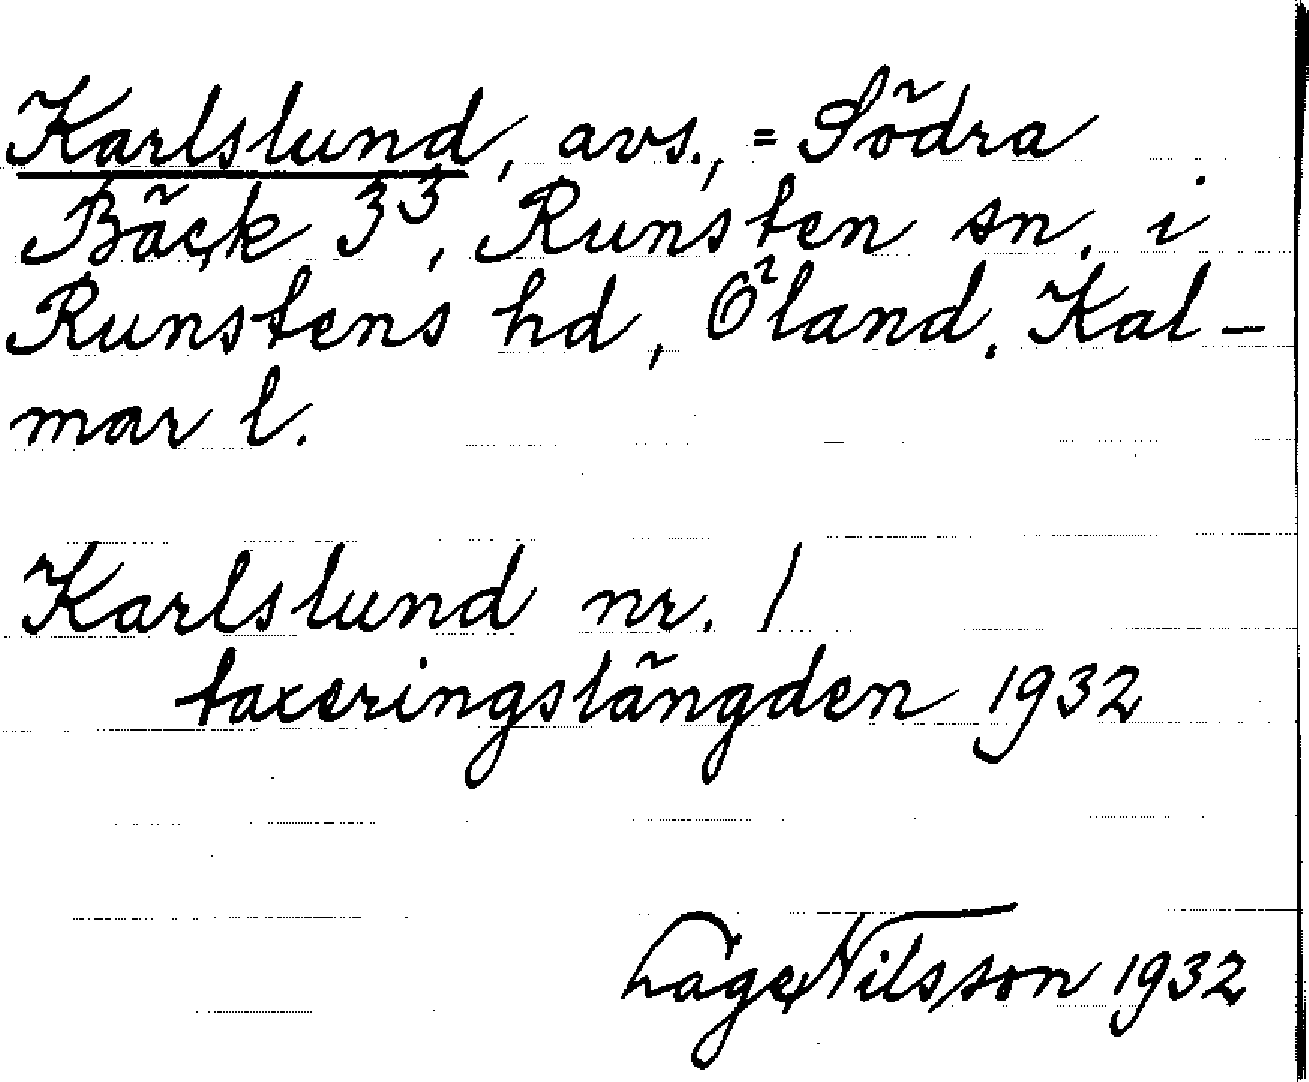 Karlslund, avs., = Södra
Bäck 3³, Runsten sn. i
Runstens hd, Öland. Kal-
mar l.
Karlslund nr. 1
taxeringslängden 1932
Låge Nilsson 1932